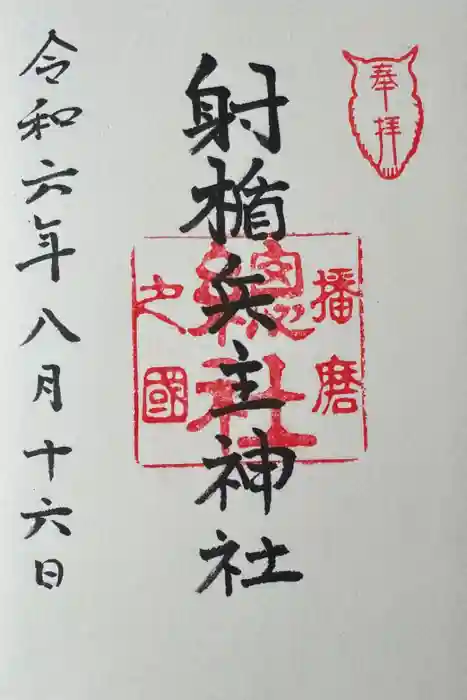 奉拝
射楯兵主神社
播磨
總社
之國
令和六年八月十六日